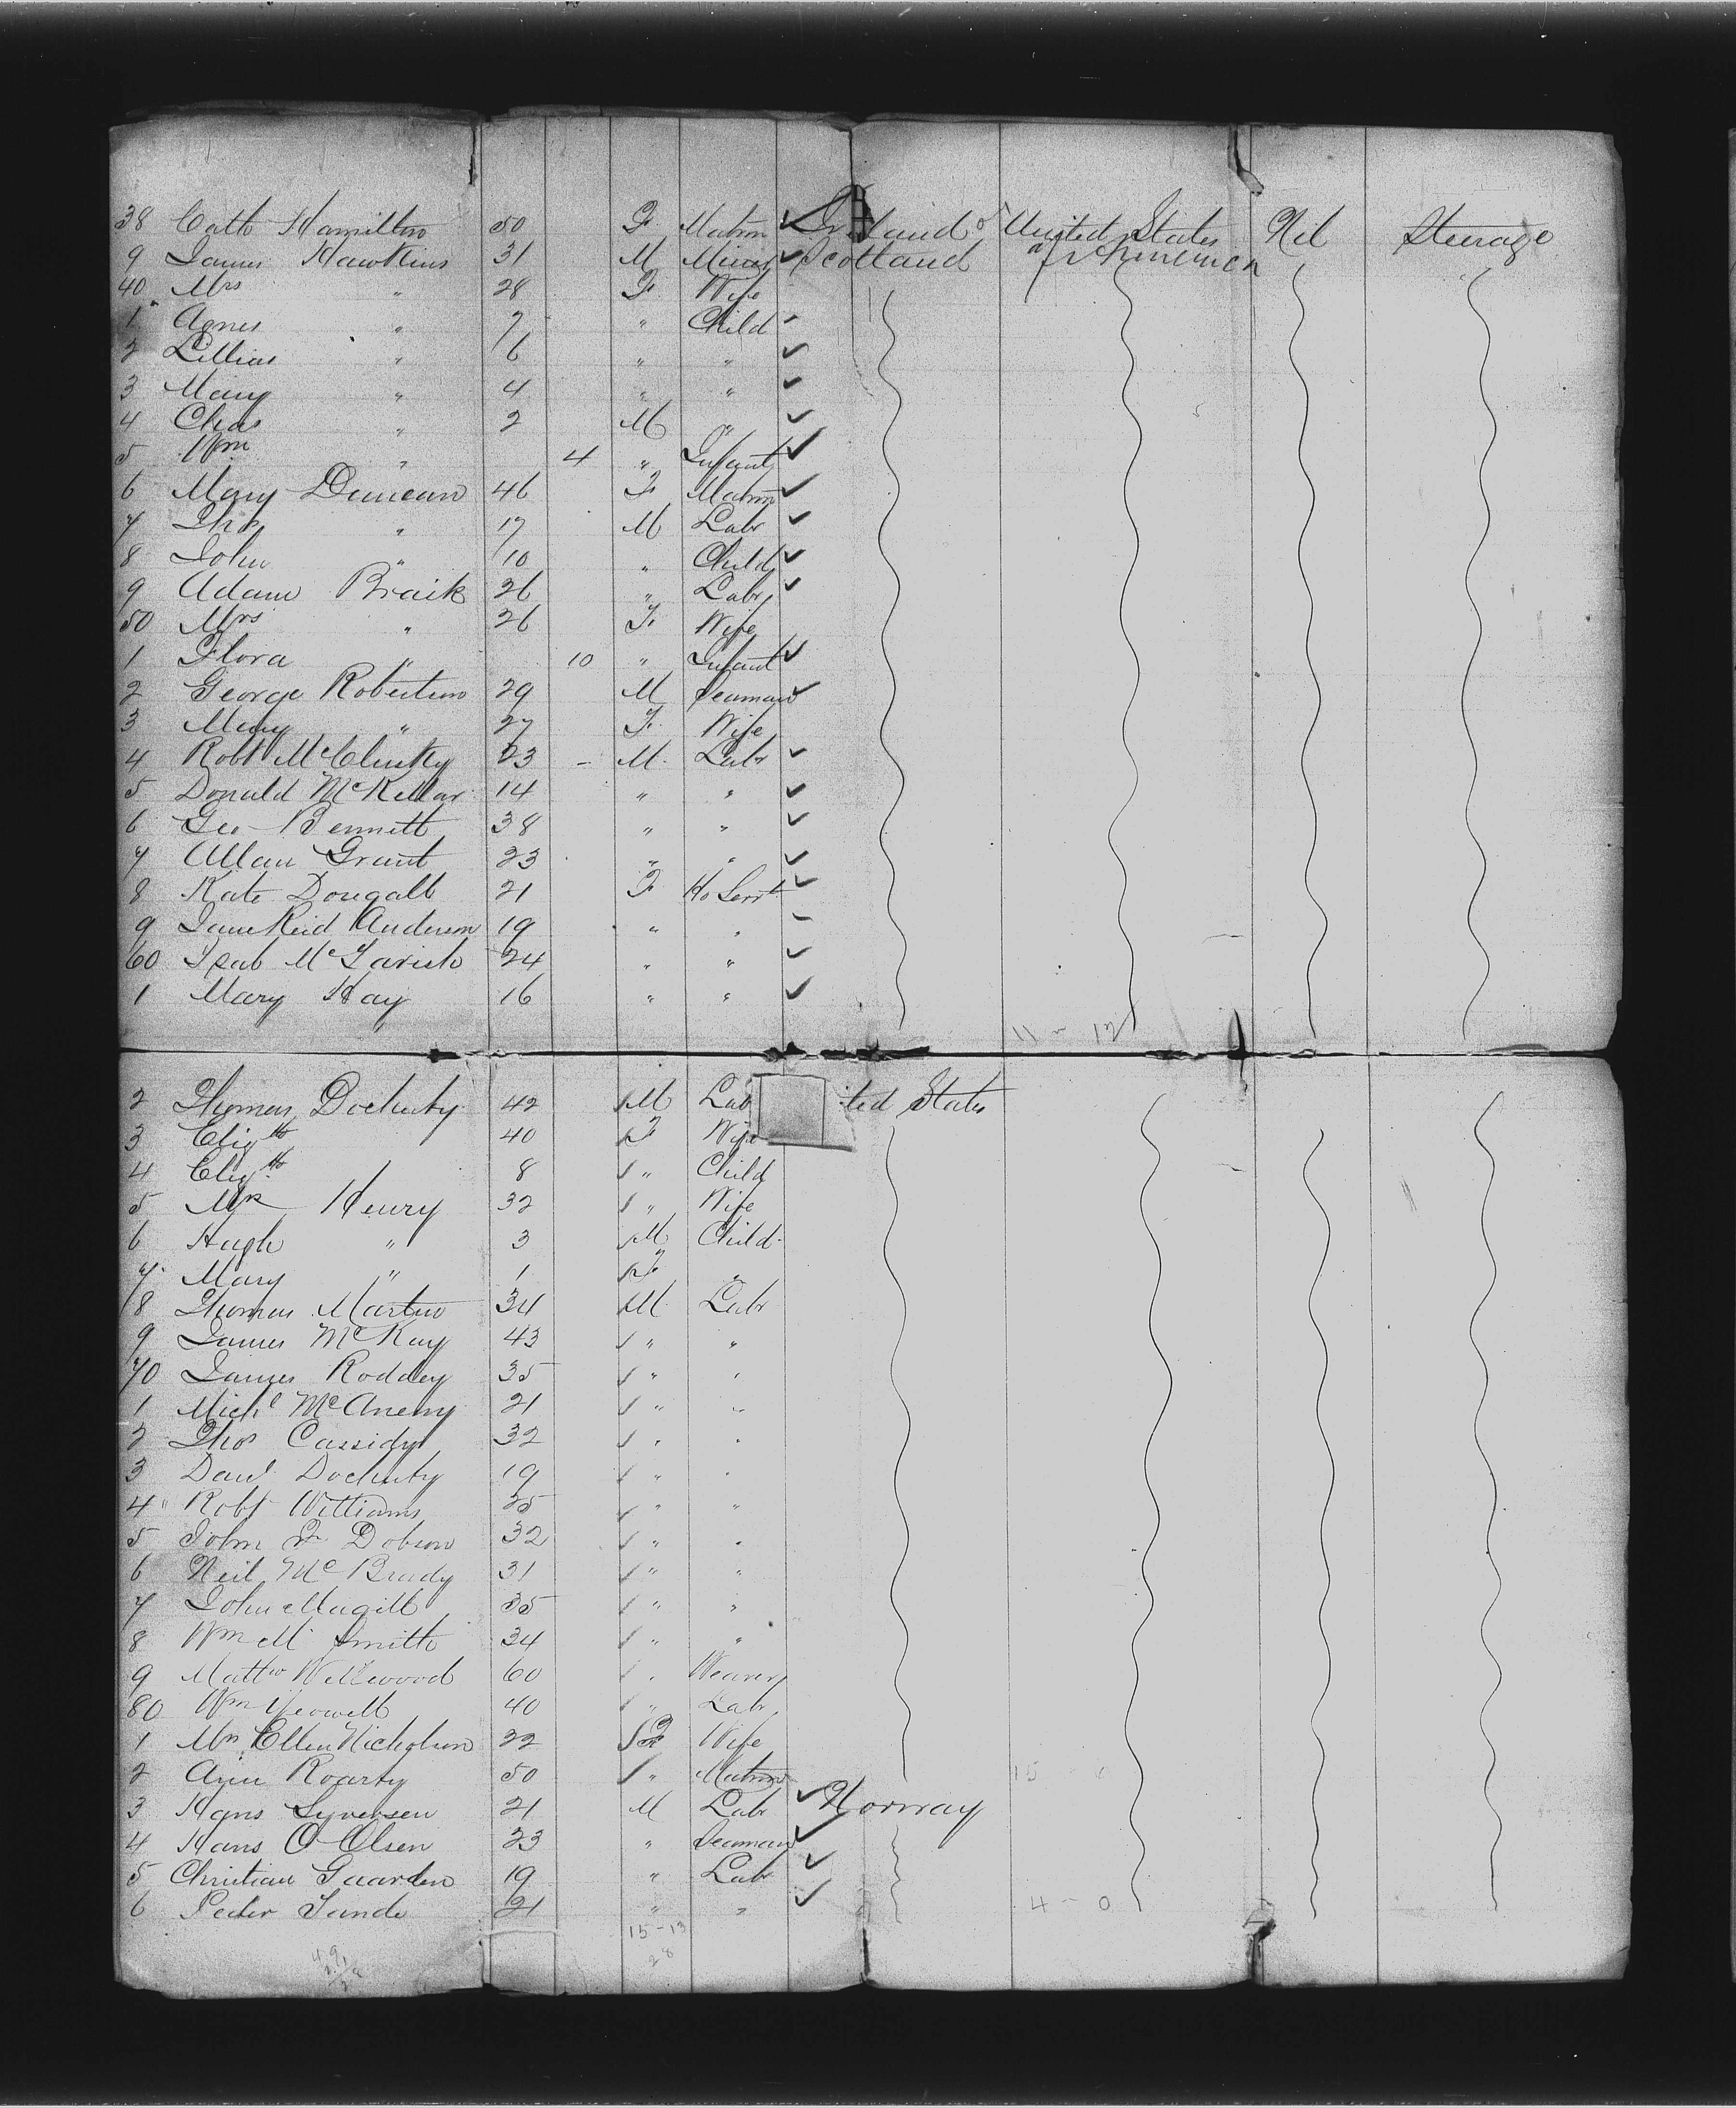 38 Cath Hamilton 50 F Matron Ireland United States Nil Steerage
9 James Hawkins 31 M Miner Scotland of America
40 Mrs " 28 F Wife
1 Agnes " 7 " Child
2 Lillias " 6 " "
3 Mary " 4 " "
4 Chas " 2 M "
5 Wm " 4 " Infant
6 Mary Duncan 46 F Matron
7 Thos " 17 M Labr
8 John " 10 " Child
9 Adam Braik 26 " Labr
50 Mrs " 26 F Wife
1 Flora " 10 " Infant
2 George Robertson 29 M Seaman
3 Mary " 27 F Wife
4 Robt McClusky 23 - M Labr
5 Donald McKellar 14 " "
6 Geo Bennett 38 " "
7 Allan Grant 23 " "
8 Kate Dougall 21 F Ho Servt
9 Jane Reid Anderson 19 " "
60 Isab McTavish 24 " "
1 Mary Hay 16 " "
11 - 12
2 Thomas Docherty 42 M Lab ted States
3 Elizth 40 F Wife
4 Elizth 8 " Child
5 Mrs Henry 32 " Wife
6 Hugh " 3 M Child
7 Mary " 1 F "
8 Thomas Martin 34 M Labr
9 James McKay 43 " "
70 James Roddey 35 " "
1 Michl McAneny 21 " "
2 Thos Cassidy 32 " "
3 Danl Docherty 19 " "
4 Robt Williams 25 " "
5 John Dobson 32 " "
6 Neil McBrady 31 " "
7 John Magill 35 " "
8 Wm M Smith 34 " "
9 Mattw Wellwood 60 " Weaver
80 Wm Yeowell 40 " Labr
1 Mrs Ellen Nicholson 22 F Wife
2 Ann Roarty 50 " Matron
3 Hans Syversen 21 M Labr Norway
4 Hans O Olsen 23 " Seaman
5 Christian Gaarden 19 " Labr
6 Peder Sande 21 " " 4 - 0
15-13
28